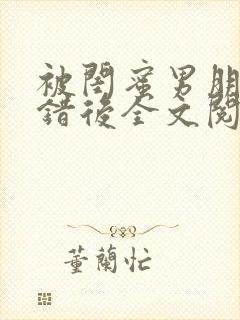 被閨蜜男朋
錯後全文閱
董蘭忙